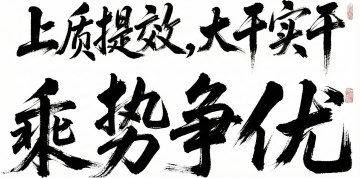 上质提效,大干实干
乘势争优